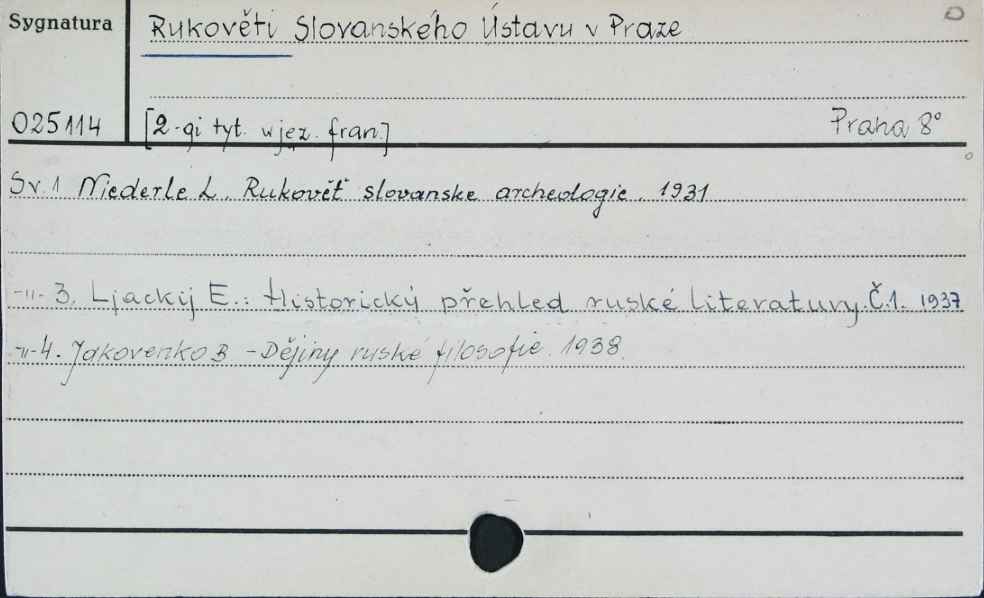 Sygnatura
Rukověti Slovanského Ústavu v Praze
025114
[2-gi tyt. w jęz. fran.]
Praha 8°
Sv.1 Niederle L. Rukovět' slovanske archeologie. 1931
-"- 3. Ljackij E.: Historický přehled ruské literatury. Č.1. 1937
-"- 4. Jakovenko B - Dějiny ruské filosofie. 1938.